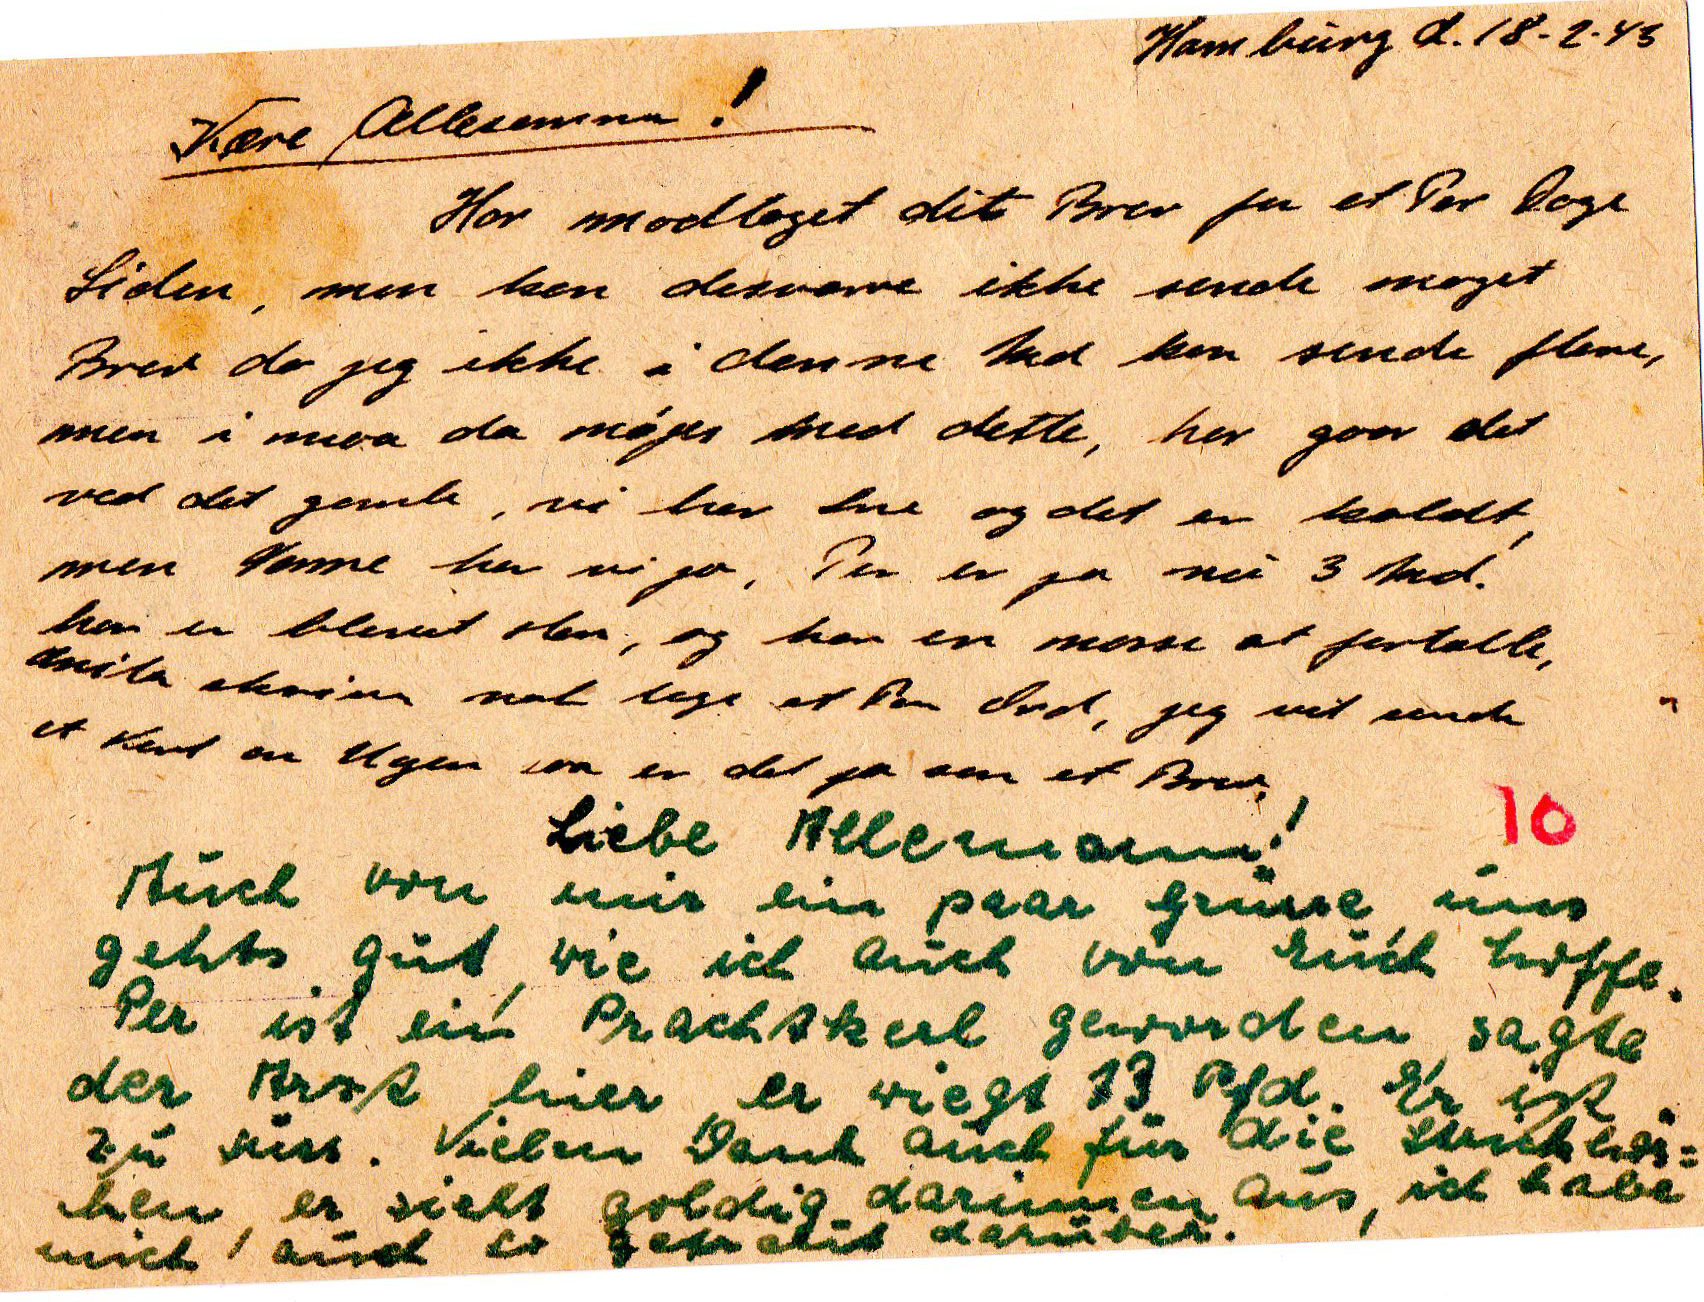 Hamburg d. 18-2-43
Kære Allesamma!
Har modtaget dit Brev for et Par Dage
Siden, men kan desværre ikke sende noget
Brev da jeg ikke i denne kan sende flere,
men i maa da nøjes med dette, her gaar det
ved det gamle, vi har sne og det er koldt,
men Varme har vi jo, Per er jo nu 3 Md.
han er blevet stor, og har en masse at fortælle,
Anita skriver nok lige et Par Ord, jeg vil sende
et Kort om Ugen saa er det jo som et Brev.
10
Liebe Allemann!
Auch von mir ein paar Grüsse, uns
gehts gut, wie ich auch von Euch hoffe.
Per ist ein Prachtkerl geworden, sagte
der Arzt hier er wiegt 13 Pfd. Er ist
zu süss. Vielen Dank auch für die Strickhös=
hen, er sieht goldig darinnen aus, ich habe
mich auch so gefreut darüber.